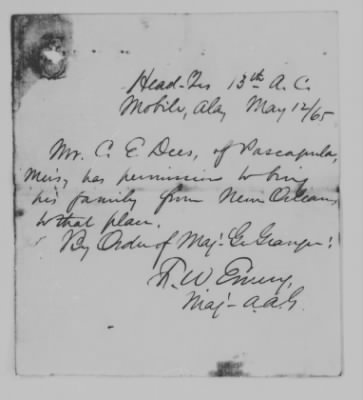 Head-Qrs 13th A.C.
Mobile, Ala, May 12/65
Mr. C. E. Dees, of Pascagoula,
Miss, has permission to bring
his family from New Orleans
to that place.
By Order of Maj. G. Granger:
F. W. Emery,
Maj - A.A.G.